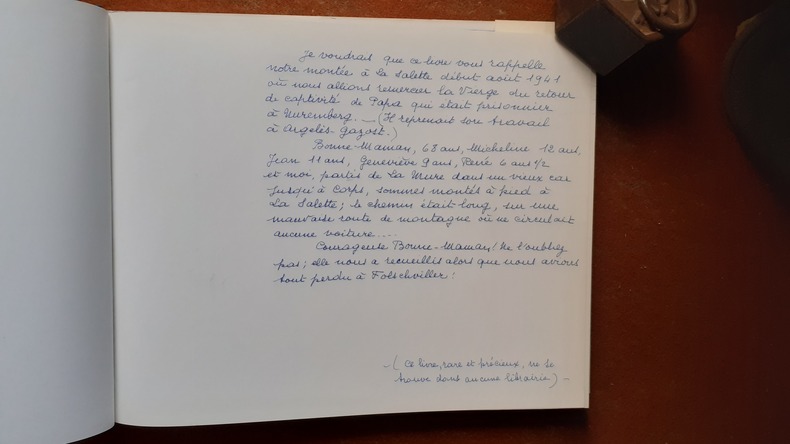 Je voudrais que ce livre vous rappelle
notre montée à La Salette début août 1941
où nous allions remercier la Vierge du retour
de captivité de Papa qui était prisonnier
à Nuremberg. _ (Il reprenait son travail
à Argelès-Gazost.)
Bonne-Maman, 68 ans, Micheline 12 ans,
Jean 11 ans, Geneviève 9 ans, René 6 ans 1/2
et moi, partis de La Mure dans un vieux car
jusqu'à Corps, sommes montés à pied à
La Salette ; le chemin était long, sur une
mauvaise route de montagne où ne circulait
aucune voiture....
Courageuse Bonne-Maman ! Ne l'oubliez
pas ; elle nous a recueillis alors que nous avions
tout perdu à Folschviller !
_ ( Ce livre, rare et précieux, ne se
trouve dans aucune librairie ) _